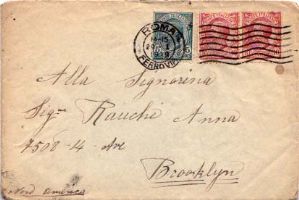 ROMA
FERROVIA
Alla Signorina
Sig.na Rauchi Anna
7500-4 Ave
Brooklyn
Nord America